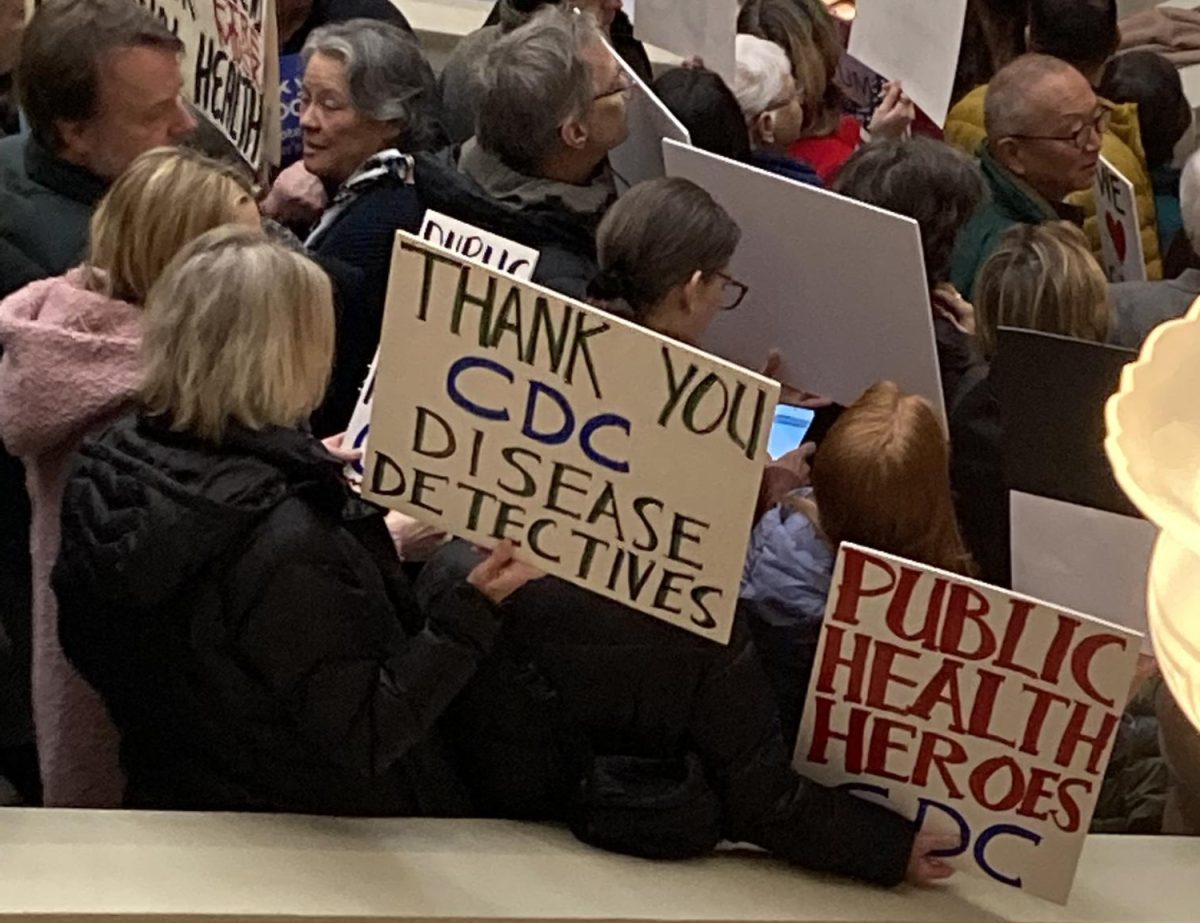 HEALTH
PUBLIC
THANK YOU
CDC
DISEASE
DETECTIVES
WE
PUBLIC
HEALTH
HEROES
CDC